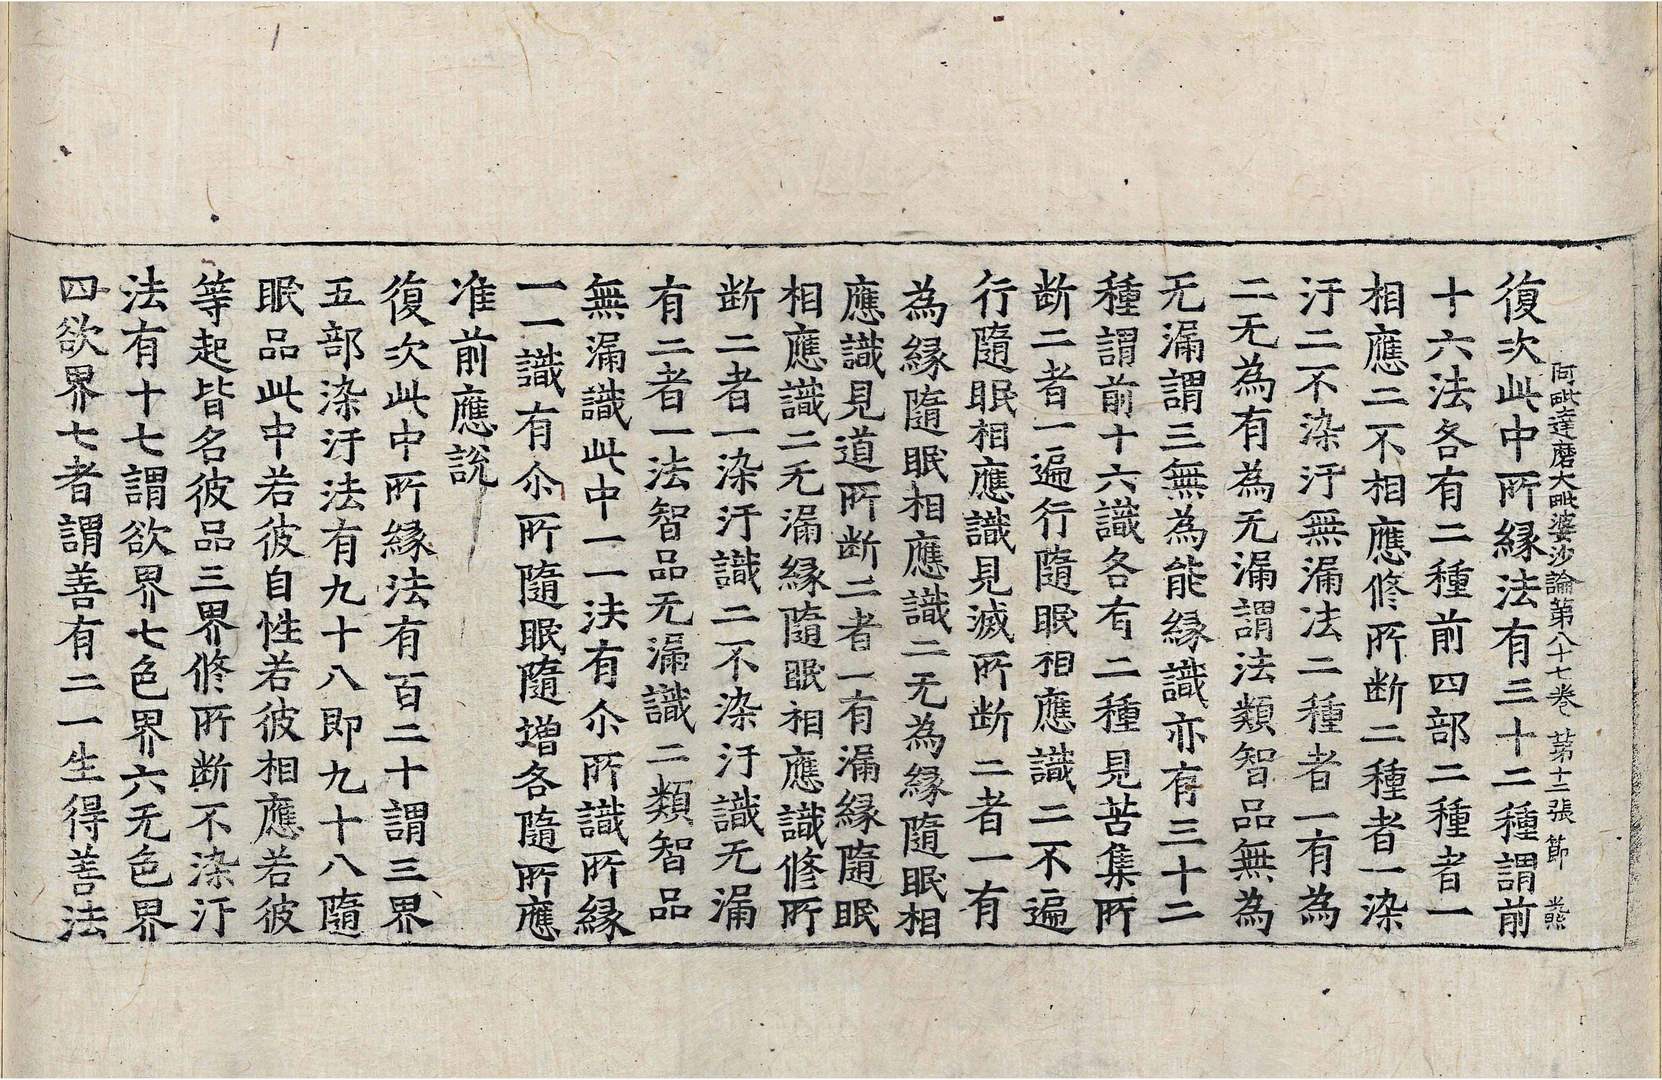 阿毗達磨大毗婆沙論第八十七卷 苐十二張 節
復次此中所緣法有三十二種謂前
十六法各有二種前四部二種者一
相應二不相應修所断二種者一染
汙二不染汙無漏法二種者一有為
二无為有為无漏謂法類智品無為
无漏謂三無為能緣識亦有三十二
種謂前十六識各有二種見苦集所
断二者一遍行隨眠相應識二不遍
行隨眠相應識見滅所断二者一有
為緣隨眠相應識二无為緣隨眠相
應識見道所断二者一有漏緣隨眠
相應識二无漏緣隨眠相應識修所
断二者一染汙識二不染汙識无漏
有二者一法智品无漏識二類智品
無漏識此中一一法有尒所識所緣
一一識有尒所隨眠隨增各隨所應
准前應説
復次此中所緣法有百二十謂三界
五部染汙法有九十八即九十八隨
眠品此中若彼自性若彼相應若彼
等起皆名彼品三界修所断不染汙
法有十七謂欲界七色界六无色界
四欲界七者謂善有二一生得善法